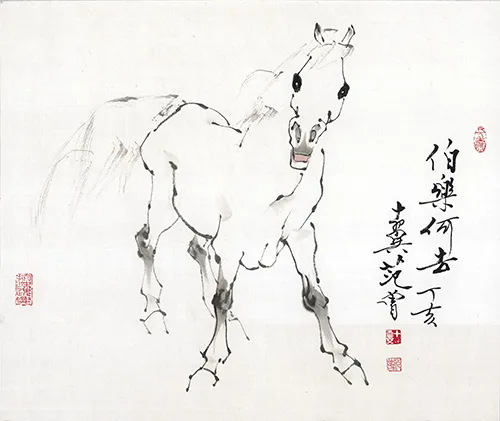 伯樂何去 丁亥
十翼范曾